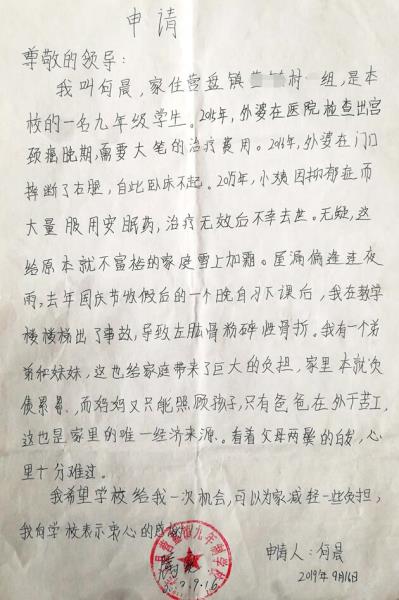 申请
尊敬的领导:
我叫何晨,家住营盘镇 村 组,是本
校的一名九年级学生。2015年,外婆在医院检查出宫
颈癌晚期,需要大笔的治疗费用。2016年,外婆在门口
摔断了右腿,自此卧床不起。2017年,小姨因抑郁症而
大量服用安眠药,治疗无效后不幸去世。无疑,这
给原本就不富裕的家庭雪上加霜。屋漏偏逢连夜
雨,去年国庆节收假后的一个晚自习下课后,我在教学
楼楼梯出了事故,导致左肱骨粉碎性骨折。我有一个弟
弟和妹妹,这也给家庭带来了巨大的负担,家里本就欠
债累累,而妈妈又只能照顾孩子,只有爸爸在外干苦工,
这也是家里的唯一经济来源。看着父母两鬓的白发,心
里十分难过。
我希望学校给我一次机会,可以为家减轻一些负担,
我向学校表示衷心的感谢
九年制学校
申请人:何晨
9.16
2019年9月16日